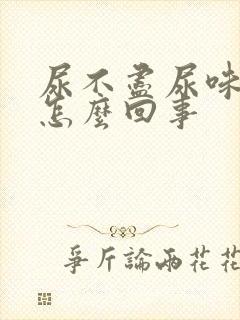 尿不盡尿味
怎麼回事
爭斤論兩花花